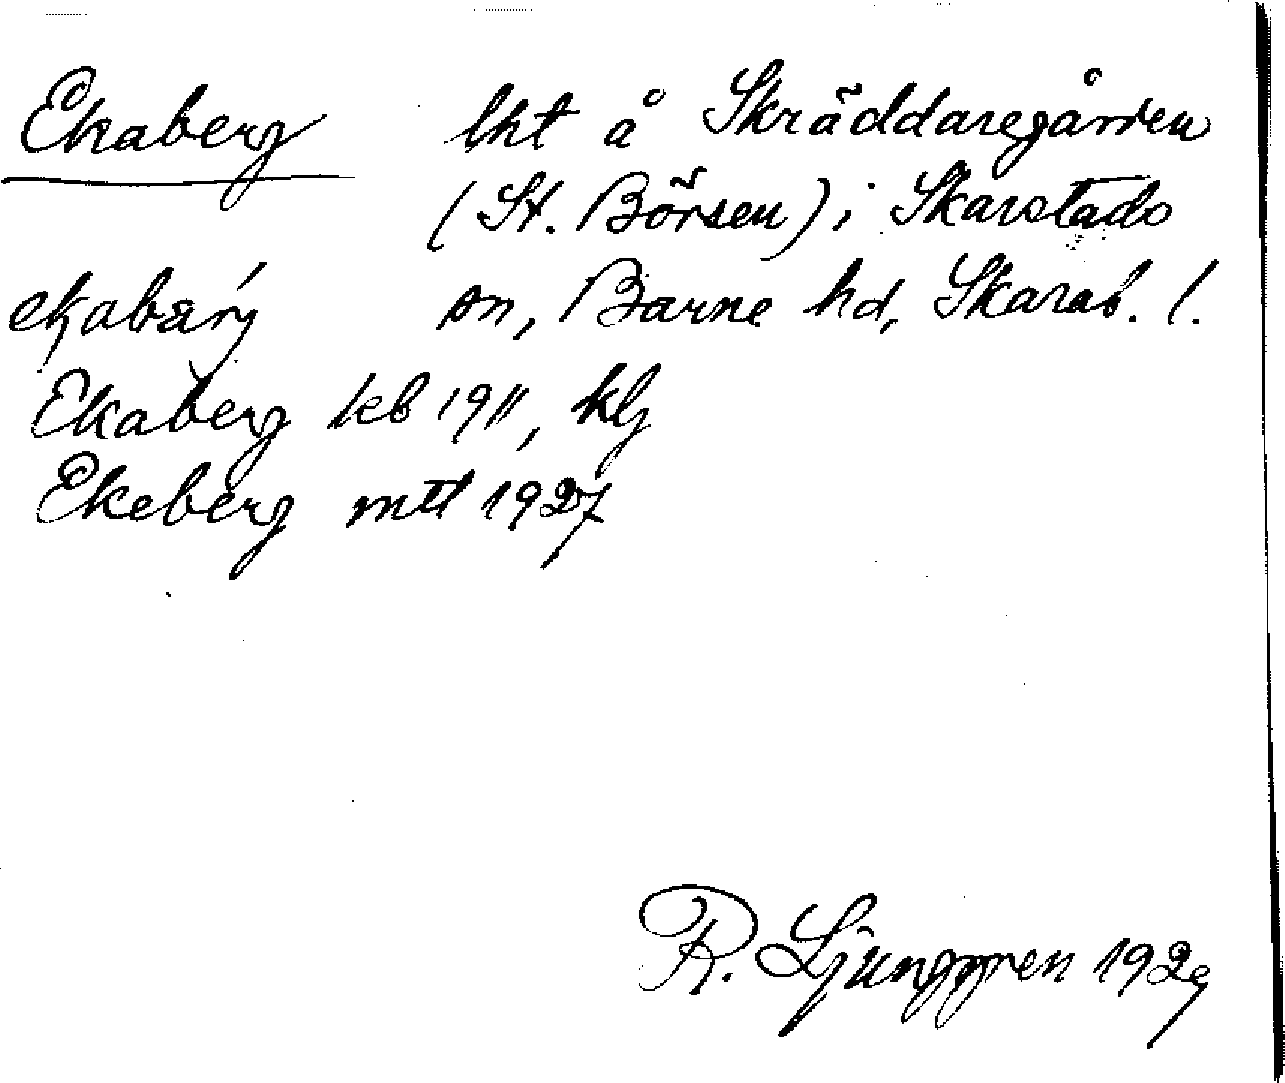 Ekaberg lht å Skräddaregården
(St. Börsen) i Skarstads
sn, Barne hd, Skarab. l.
Ekaberg kb 1911, klj
Ekeberg mtl 1927
R. Ljunggren 1929